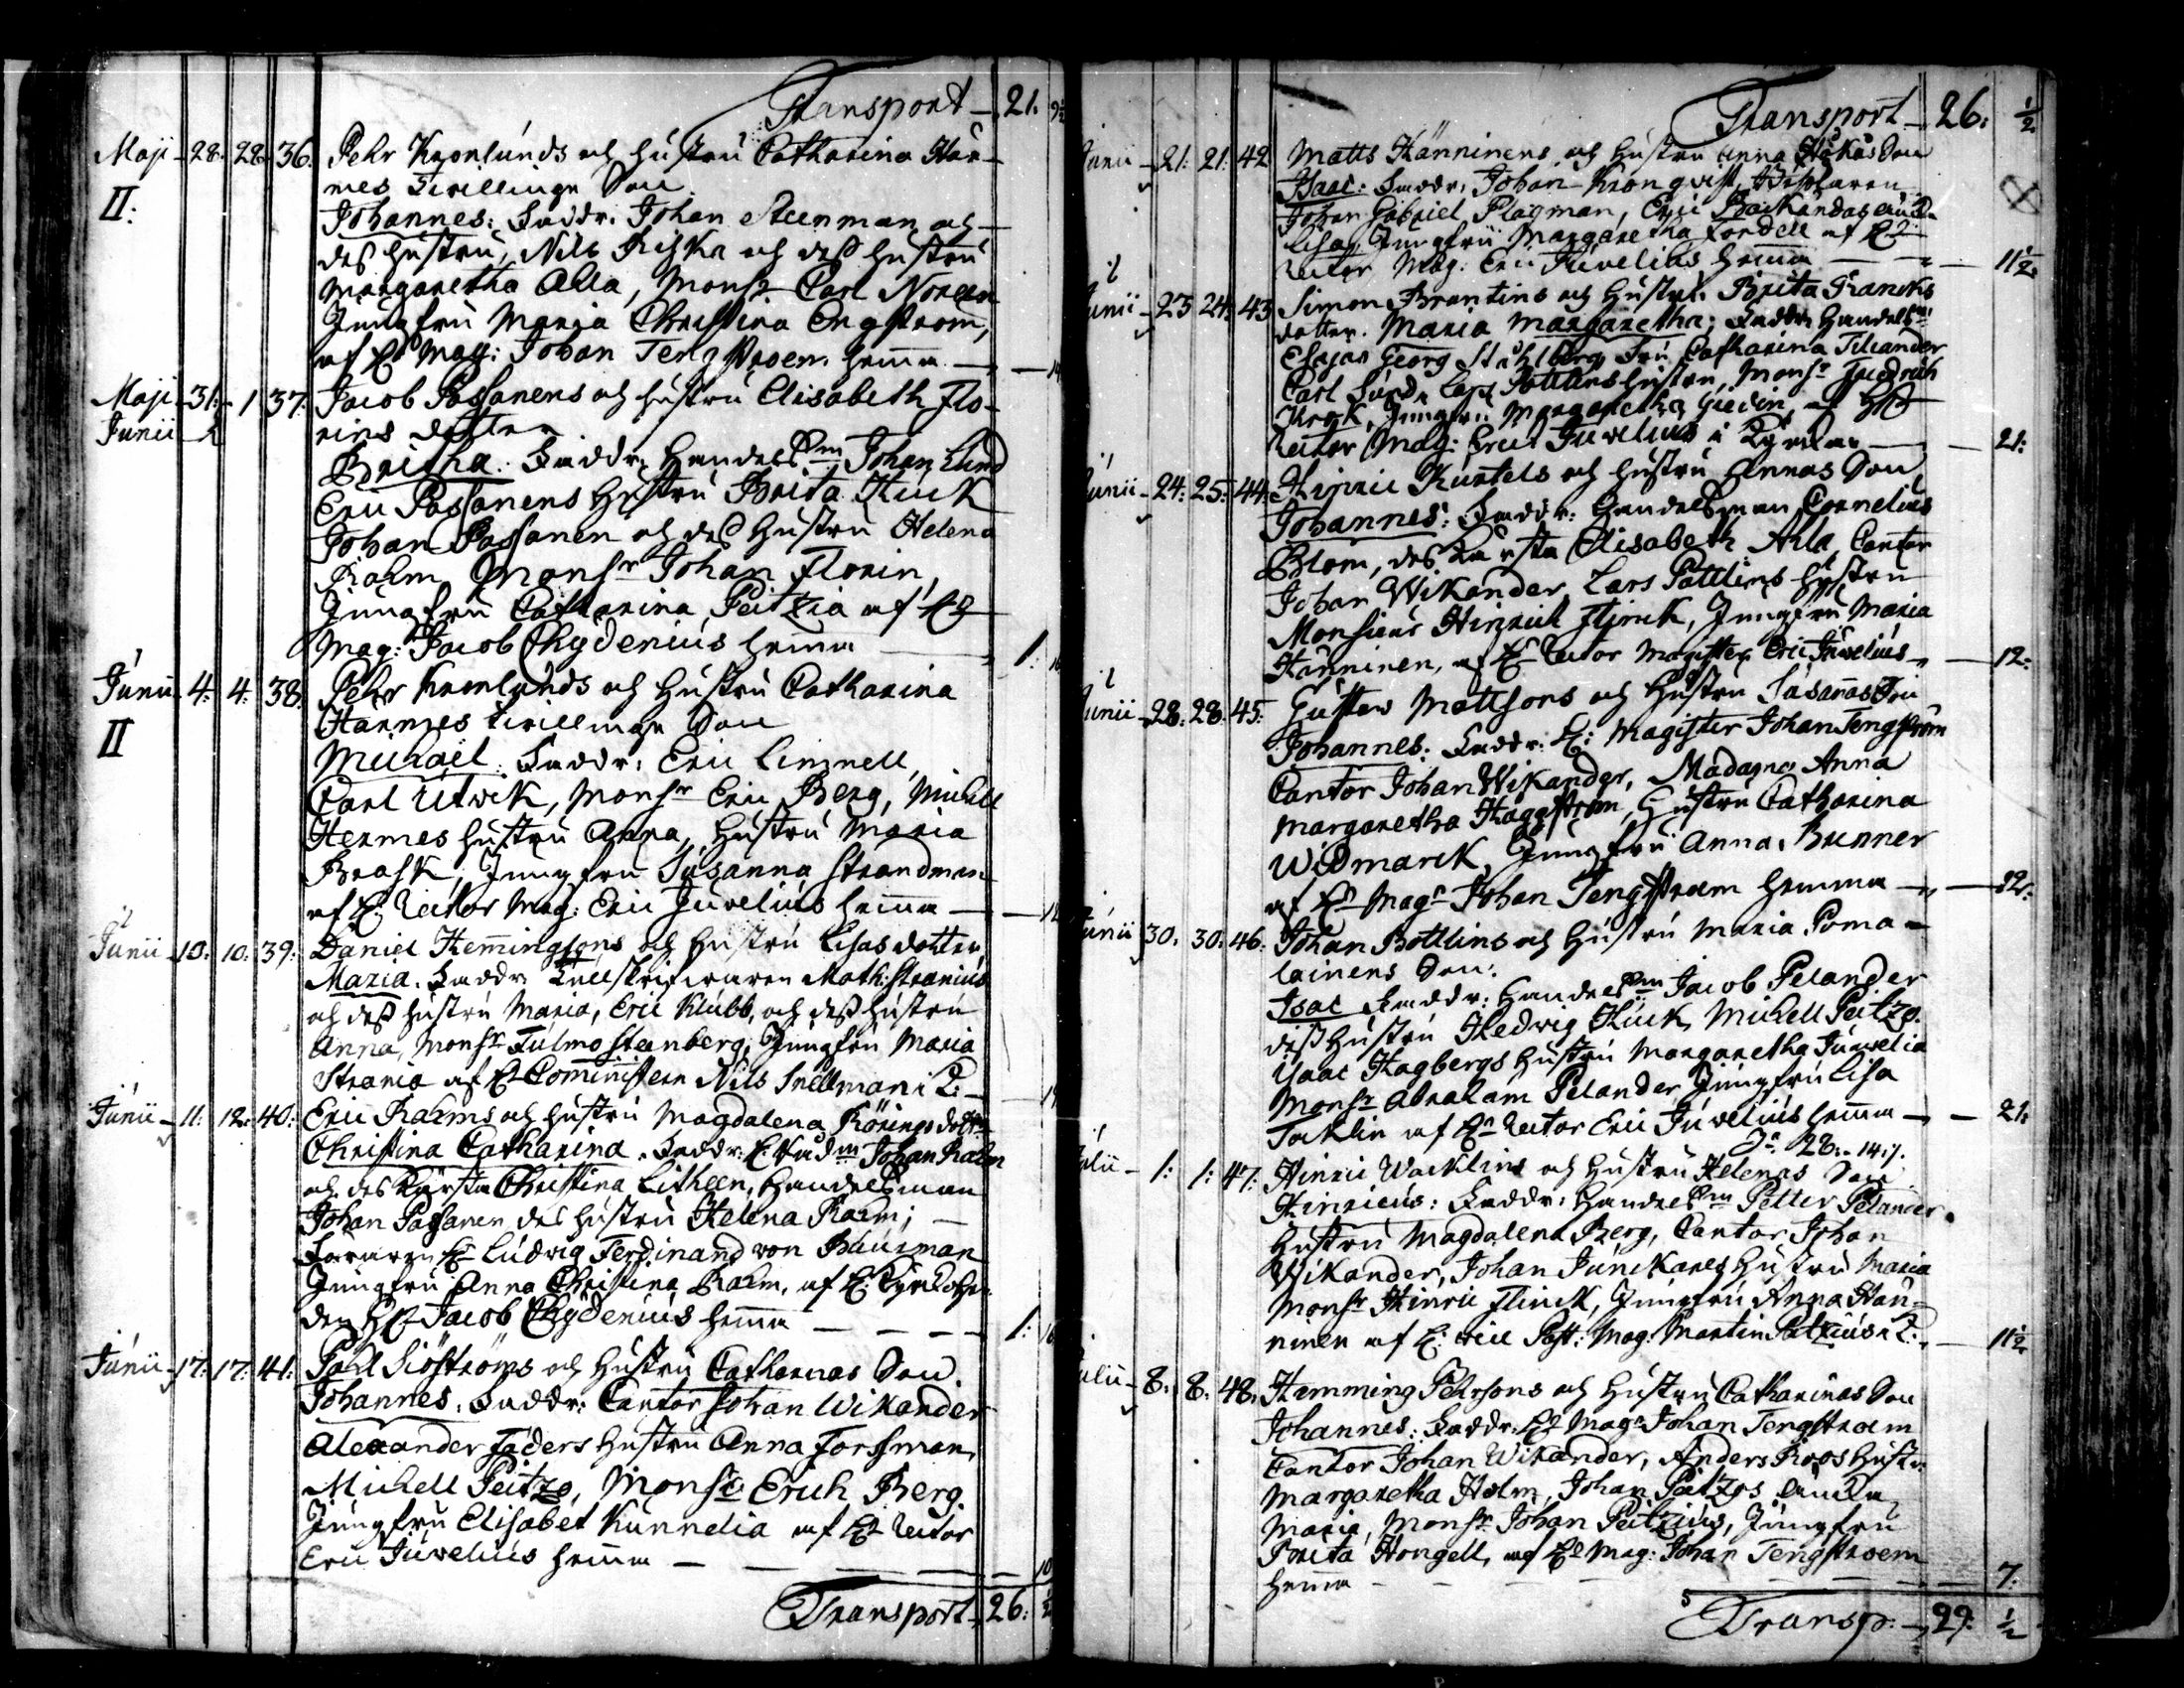 Transport - 21. 9½
Maji - 28. 28. 36. Pehr Kronlunds och hustru Catharina Har-
II: mes Twillinge Son
Johannes: Faddr. Johan Steenman och
des hustru, Nils Riska och dess hustru
Margaretha Ahla, Monsr Carl Noreen
Jungfru Maria Christina Engstrom,
af Hr Mag: Johan Tengstroem hemma
Maji - 31. - 1 37. Jacob Passanens och hustru Elisabeth Flo-
Junii rins dotter
Britha. Faddr. Handelsm Johan Lund
Eric Passanens Hustru Brita Kuck
Johan Passanen och des Hustru Helena
Kalm Monsr Johan Florin,
Jungfru Catharina Peitzia af Hr
Mag: Jacob Chydenius hemma 1:
Junii 4. 4. 38. Pehr Kronlunds och Hustru Catharina
II Harmes twillinge Son
Michael. Faddr. Eric Linnell,
Carl Utwik, Monsr Eric Berg, Michell
Hermes hustru Anna, Hustru Maria
Brask, Jungfru Susanna Strandman
af H. Rector Mag: Eric Juvelius hemma
Junii 10. 10. 39. Daniel Hemmingsons och Hustru Lisas dotter
Maria. Faddr. Tullskrifwaren Math: Stranius
och dess hustru Maria, Eric Klubb, och dess hustru
Anna, Monsr Stenberg, Jungfru Maria
Strania af Hr Comministern Nils Snellman i K.
Junii 11. 12. 40. Eric Kalms och hustru Magdalena Rörings dotter
Christina Catharina. Faddr: H. Johan Kalm
och des Kärsta Christina Litheen, Handelsman
Johan Passanen des hustru Helena Kalm;
Hr Ludwig Ferdinand von Bausman
Jungfru Anna Christina Kalm, af H. Kyrkohe-
den Hr Jacob Chydenius hemma 1:
Junii 17. 17. 41. Pahl Siöströms och Hustru Catharinas Son.
Johannes. Faddr: Cantor Johan Wikander
Alexander Fäders Hustru Anna Forssman,
Michell Peitzo, Monsr Erich Berg.
Jungfru Elisabet Kunnelia af Hr Rector
Eric Juvelius hemma
Transport 26. ½
Transport - 26. ½
Junii - 21. 21. 42 Matts Hänninens och Hustru Anna Son
Isaac: Faddr. Johan Kronqvist
Johan Gabriel Plagman, Eric
Lisa, Jungfru Margaretha Fordell af Hr
Rector Mag: Eric Juvelius hemma 11½
Junii 23 24. 43 Simon Brontins och Hustru Brita
dotter. Maria Margaretha; Faddr. Handelsm
Esajas Georg Stahlberg, Fru Catharina Telander
Carl Lars Pottlins hustru, Monsr Fredrich
Krook, Jungfru Margaretha Giedin, af Hr
Rector Mag: Eric Juvelius i Kyrckan 21.
Junii - 24. 25. 44. Hinric Kurtels och hustru Annas Son
Johannes: Faddr: Handelsman Cornelius
Blom, des Kärsta Elisabeth Ahla, Cantor
Johan Wikander, Lars Pottlins hustru
Monsieur Hinrich Flinck, Jungfru Maria
Hänninen, af Hr Rector Magister Eric Juvelius 12.
Junii - 28. 28. 45. Gustav Mattsons och Hustru Susannas Son
Johannes. Faddr: H: Magister Johan Tengström
Cantor Johan Wikander, Madame Anna
Margaretha Häggström, Hustru Catharina
Widmarck, Jungfru Anna Brunner
af Hr Magr Johan Tengstroem hemma
Junii 30. 30. 46. Johan Bottlins och Hustru Maria Poma-
lainens Son.
Isac Faddr: Handelsm Jacob Pelander
dess Hustru Hedwig Kuck, Michell Peitzo.
Isaac Hagbergs Hustru Margaretha Juwelia
Monsr Abraham Pelander Jungfru Lisa
Tocklin af Hr Rector Eric Juvelius hemma 21.
28. - 14.
Julii - 1. 1. 47. Hinric Wacklins och Hustru Helenas Son
Hinricus: Faddr: Handelsm Petter Pelander.
Hustru Magdalena Berg, Cantor Johan
Wikander, Johan Junckares Hustru Maria
Monsr Hinric Flinck, Jungfru Anna Hän-
ninen af H: Vice Past: Mag: Martin Peitzius i K. 11½
Julii - 8. 8. 48. Hemming Pehrsons och Hustru Catharinas Son
Johannes: Faddr. Hr Magr Johan Tengstroem
Cantor Johan Wikander, Anders Roos Hustru
Margaretha Holm, Johan Peitzos
Maria, Monsr Johan Peitzius, Jungfru
Brita Hongell, af Hr Mag: Johan Tengstroem
hemma 7.
Transp. - 29. ½